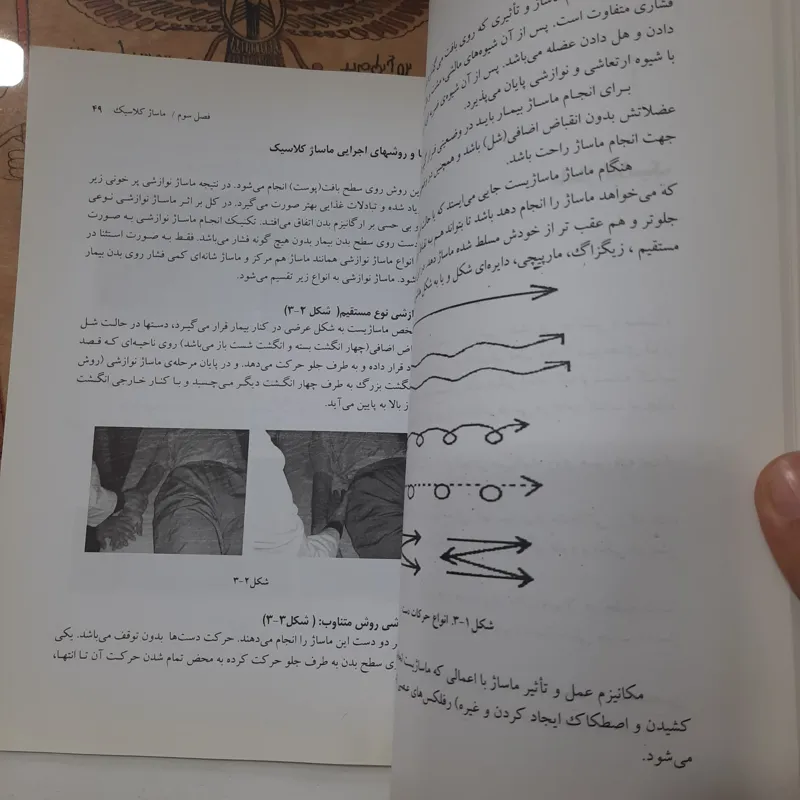 فشاری متفاوت است. پس از آن شیوه‌های مالشی،
دادن و هل دادن عضله می‌باشد. پس از آن شیوه‌ی
با شیوه ارتعاشی و نوازشی پایان می‌پذیرد.
برای انجام ماساژ بیمار باید در وضعیتی
عضلاتش بدون انقباض اضافی(شل) باشد و همچنین
جهت انجام ماساژ راحت باشد.
هنگام ماساژ ماساژیست جایی می‌ایستد که
که می‌خواهد ماساژ را انجام دهد باشد تا بتواند هم به
جلوتر و هم عقب تر از خودش مسلط شده ماساژ دهد.
مستقیم ، زیگزاگ، مارپیچی، دایره‌ای شکل و یا به شکل
شکل ۱-۳. انواع حرکات دست
مکانیزم عمل و تأثیر ماساژ با اعمالی که ماساژیست
کشیدن و اصطکاک ایجاد کردن و غیره) رفلکس‌های
می‌شود.
فصل سوم / ماساژ کلاسیک ۴۹
و روشهای اجرایی ماساژ کلاسیک
این روش روی سطح بافت(پوست) انجام می‌شود. در نتیجه ماساژ نوازشی پر خونی زیر
یاد شده و تبادلات غذایی بهتر صورت می‌گیرد. در کل بر اثر ماساژ نوازشی نوعی
و بی حسی بر ارگانیزم بدن اتفاق می‌افتد. تکنیک انجام ماساژ نوازشی به صورت
دست روی سطح بدن بیمار بدون هیچ گونه فشار می‌باشد. فقط به صورت استثنا در
انواع ماساژ نوازشی همانند ماساژ هم مرکز و ماساژ شانه‌ای کمی فشار روی بدن بیمار
شود. ماساژ نوازشی به انواع زیر تقسیم می‌شود.
ازشی نوع مستقیم( شکل ۲-۳)
خص ماساژیست به شکل عرضی در کنار بیمار قرار می‌گیرد، دستها در حالت شل
اض اضافی(چهار انگشت بسته و انگشت شست باز می‌باشد) روی ناحیه‌ای که قصد
د قرار داده و به طرف جلو حرکت می‌دهد. و در پایان مرحله‌ی ماساژ نوازشی (روش
گشت بزرگ به طرف چهار انگشت دیگر می‌چسبد و با کنار خارجی انگشت
از بالا به پایین می‌آید.
شکل۲-۳
شی روش متناوب: ( شکل۳-۳)
ر دو دست این ماساژ را انجام می‌دهند. حرکت دست‌ها بدون توقف می‌باشد. یکی
ی سطح بدن به طرف جلو حرکت کرده به محض تمام شدن حرکت آن تا انتها،